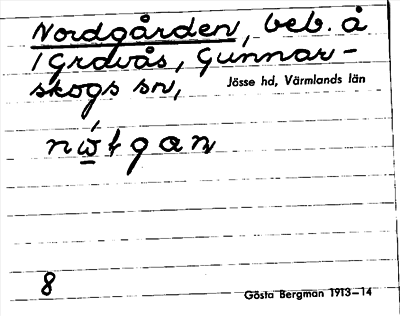 Nordgården, beb. å
1 Grdvås, Gunnar-
skogs sn,
Jösse hd, Värmlands län
8
Gösta Bergman 1913–14